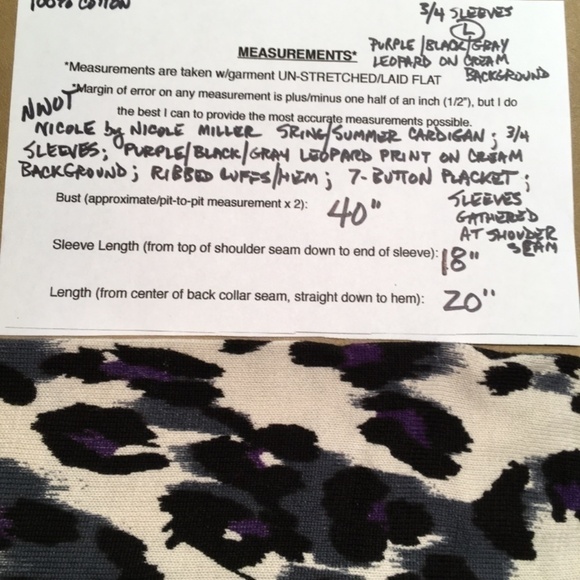 100% COTTON
3/4 SLEEVES
L
PURPLE/BLACK/GRAY
LEOPARD ON CREAM
BACKGROUND
MEASUREMENTS*
*Measurements are taken w/garment UN-STRETCHED/LAID FLAT
*Margin of error on any measurement is plus/minus one half of an inch (1/2"), but I do
the best I can to provide the most accurate measurements possible.
NWOT
NICOLE by NICOLE MILLER SRING/SUMMER CARDIGAN; 3/4
SLEEVES; PURPLE/BLACK/GRAY LEOPARD PRINT ON CREAM
BACKGROUND; RIBBED CUFFS/HEM; 7-BUTTON PLACKET;
SLEEVES
GATHERED
AT SHOUDER
SEAM
Bust (approximate/pit-to-pit measurement x 2): 40"
Sleeve Length (from top of shoulder seam down to end of sleeve): 18"
Length (from center of back collar seam, straight down to hem): 20"